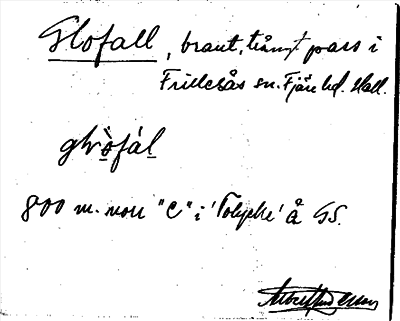 Glofall, brant, trångt pass i
Frillesås sn. Fjäre hd. Hall.
800 m. norr "C" i 'Tolycke' å GS.